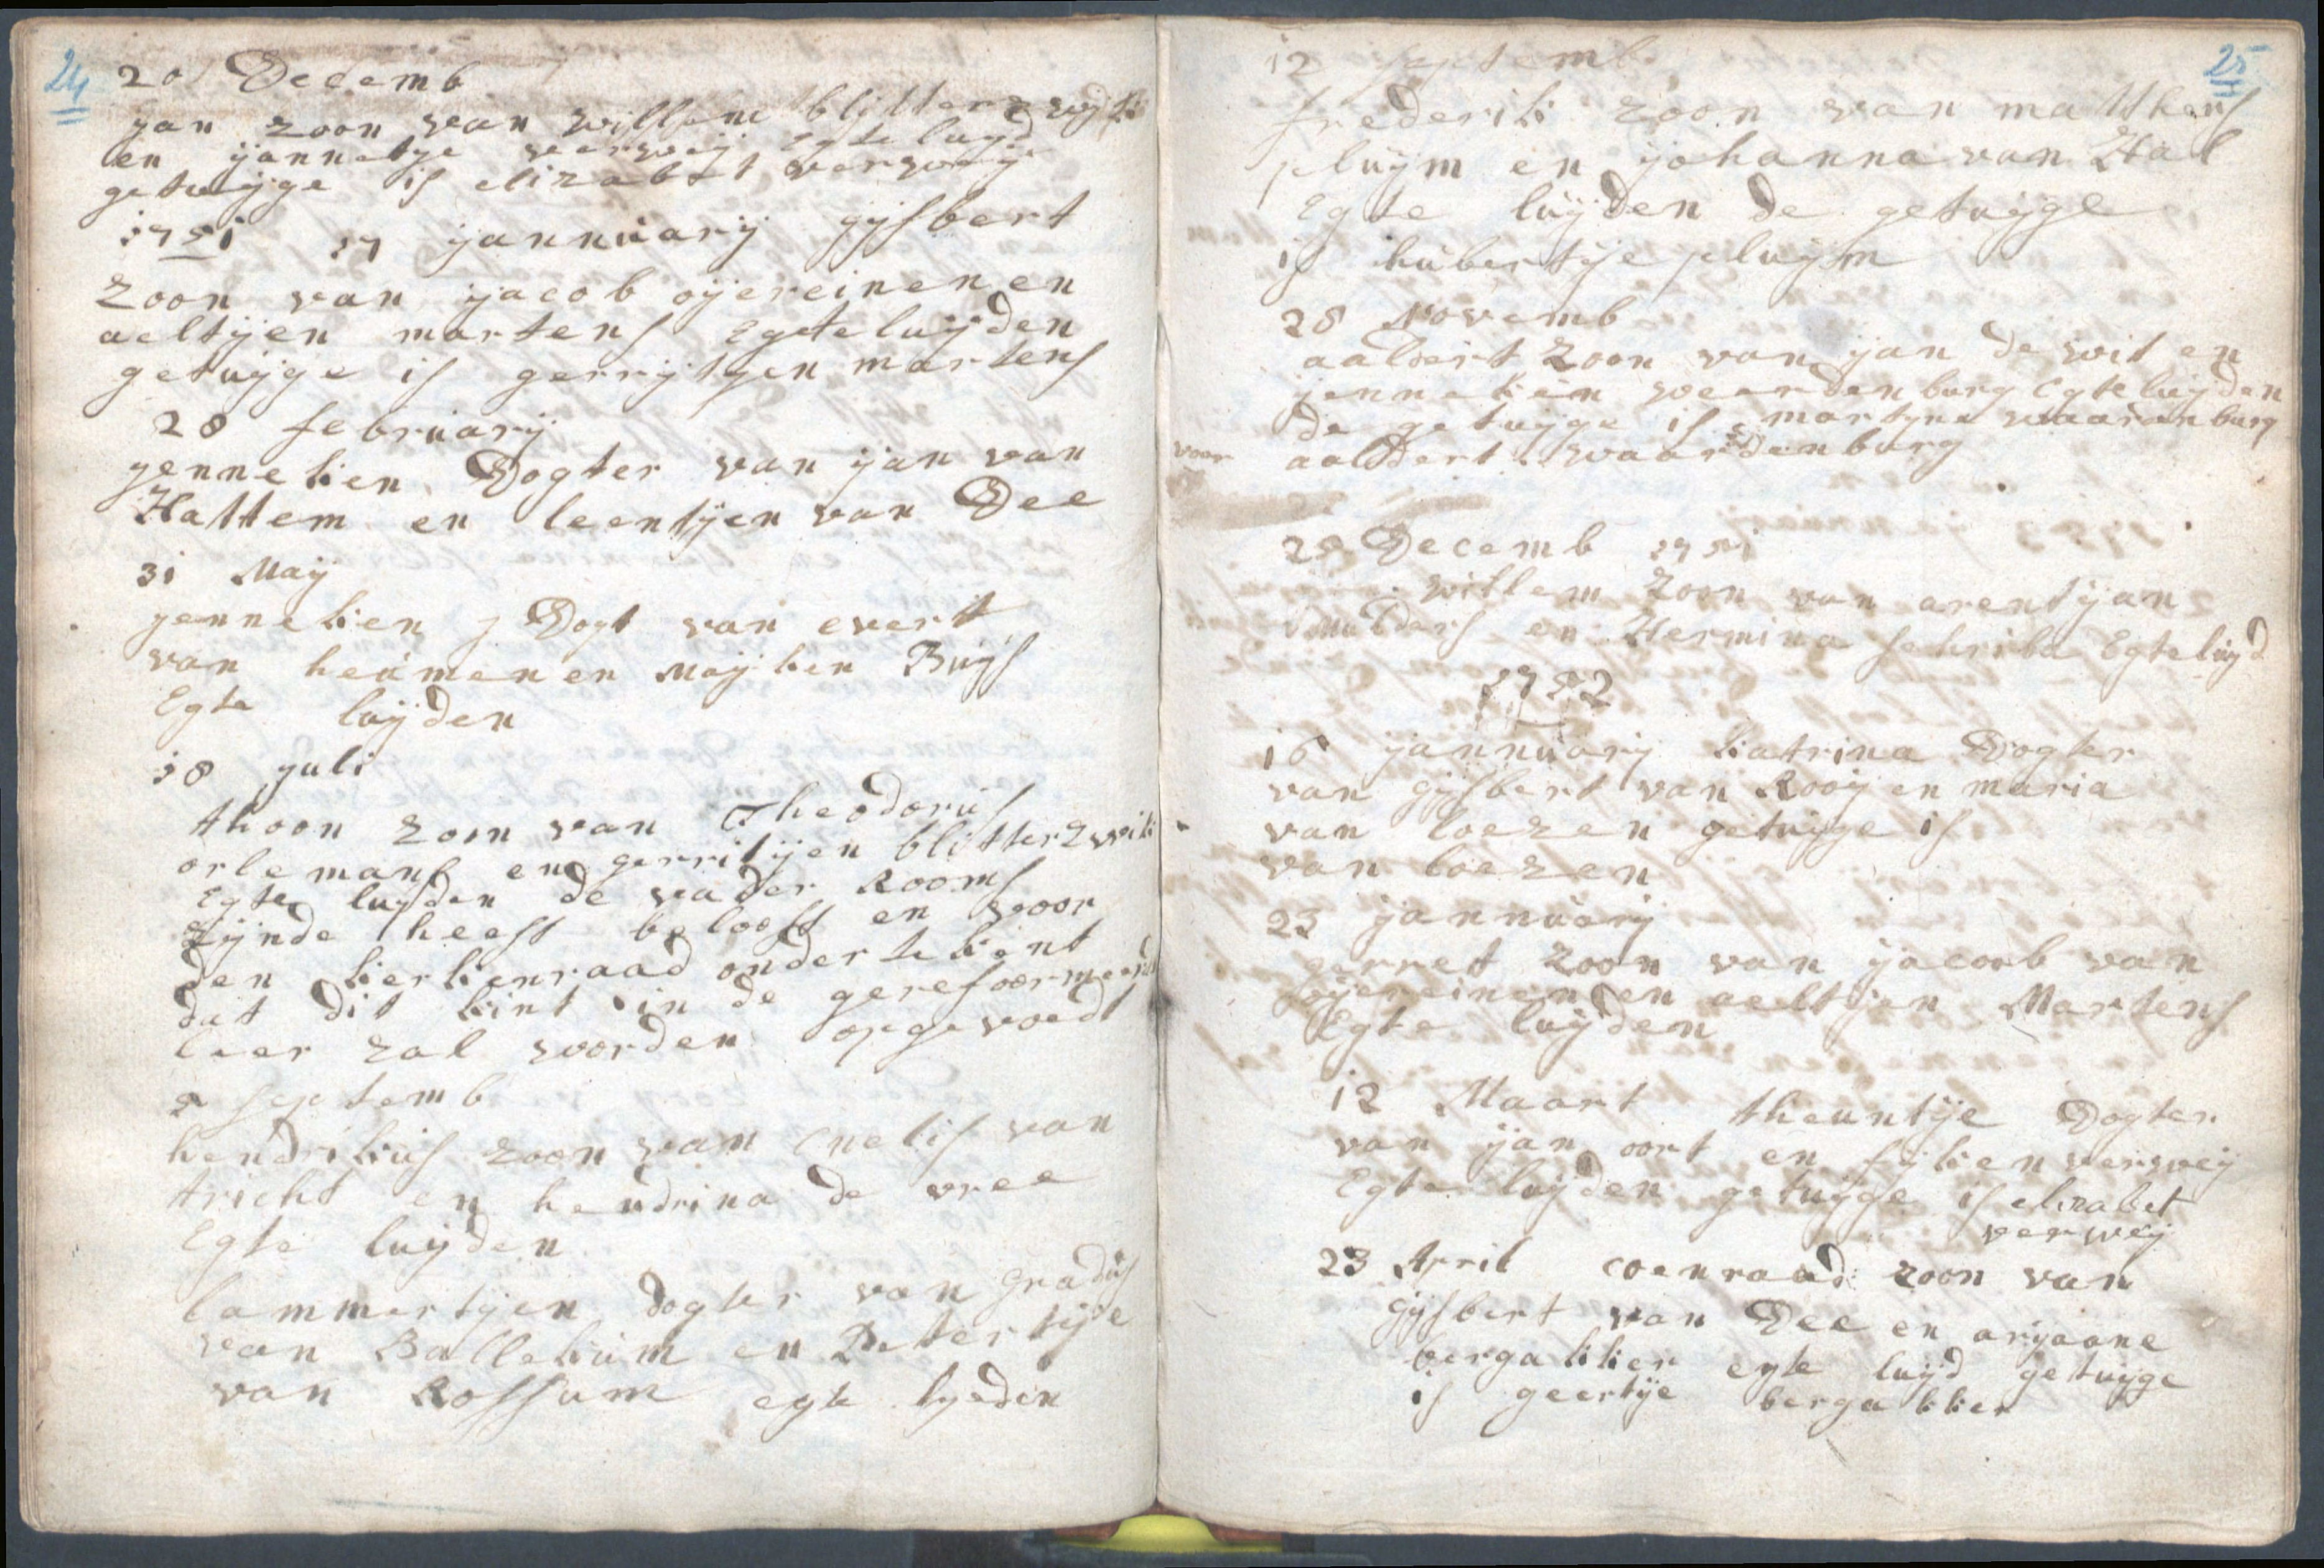 24
20 Decemb
yan zoon van willem blitterzwijk
en yannetye verweij Egte luijd
getuijge is elizabet verweij
1751 17 yannuarij gijsbert
zoon van yacob oijereinen en
aeltijen martens Egte luijden
getuijge is gerrijtyen martens
28 februarij
yenneken Dogter van yan van
Hattem en leentijen van Dee
31 Maij
yenneken Dogt van evert
van heumen en Maijken Buijs
Egte luijden
18 yuli
thoon zoon van Theodorus
orlemans en gerritijen blitterzwik
Egte luijden de vader Rooms
zijnde heeft belooft en voor
den kerkenraad ondertekent
dat dit kint in de gerefoormeerde
leer zal worden opgevoedt
5 septemb
hendrikus zoon van Cnelis van
tricht en hendrina de vree
Egte luijden
lammertijen dogter van Gradus
van Ballekum en Petertije
van Rossum egte lyeden
25
12 septemb
frederik zoon van matthens
pluijm en yohanna van Hal
Egte luijden de getuijge
is hubertije pluijm
28 Novemb
aaldert zoon van yan de wit en
jenneken weerdenburg Egte luijden
de getuijge is martyna waarenburg
voor aaldert waardenburg
25 Decemb 1751
willem zoon van arent yan
Mulders en Hermina schriba Egte luijd
1752
16 yannuarij katrina Dogter
van gijsbert van Rooij en maria
van loezen getuijge is
van loezen
23 yannuarij
gerret zoon van yacoob van
oijereinen en aeltijen Martens
Egte luijden
12 Maart theuntije Dogter
van yan oort en sijken verweij
Egte luijden getuijge is elizabet
verweij
23 April coenraad zoon van
gijsbert van Dee en arijaane
bergakker egte luijd getuijge
is geertije bergakker